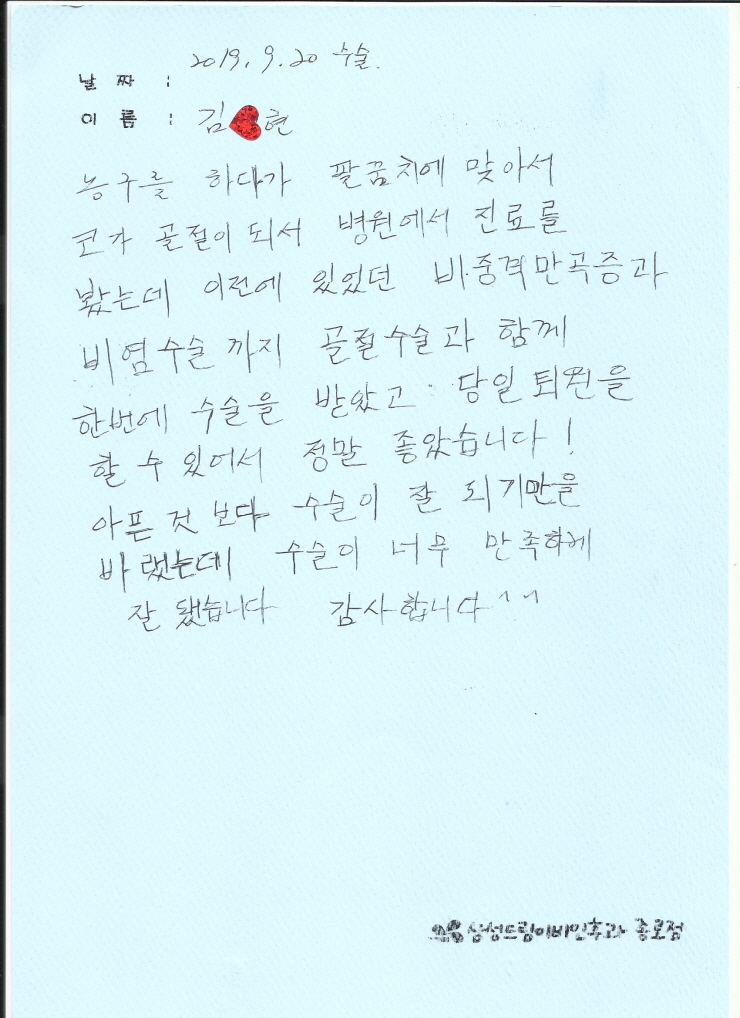 날 짜 : 2019. 9. 20 수술.
이 름 : 김 현
농구를 하다가 팔꿈치에 맞아서
코가 골절이 되서 병원에서 진료를
봤는데 이전에 있었던 비중격만곡증과
비염수술까지 골절수술과 함께
한번에 수술을 받았고 당일 퇴원을
할 수 있어서 정말 좋았습니다!
아픈 것 보다 수술이 잘 되기만을
바랬는데 수술이 너무 만족하게
잘 됐습니다 감사합니다^^
삼성드림이비인후과 종로점